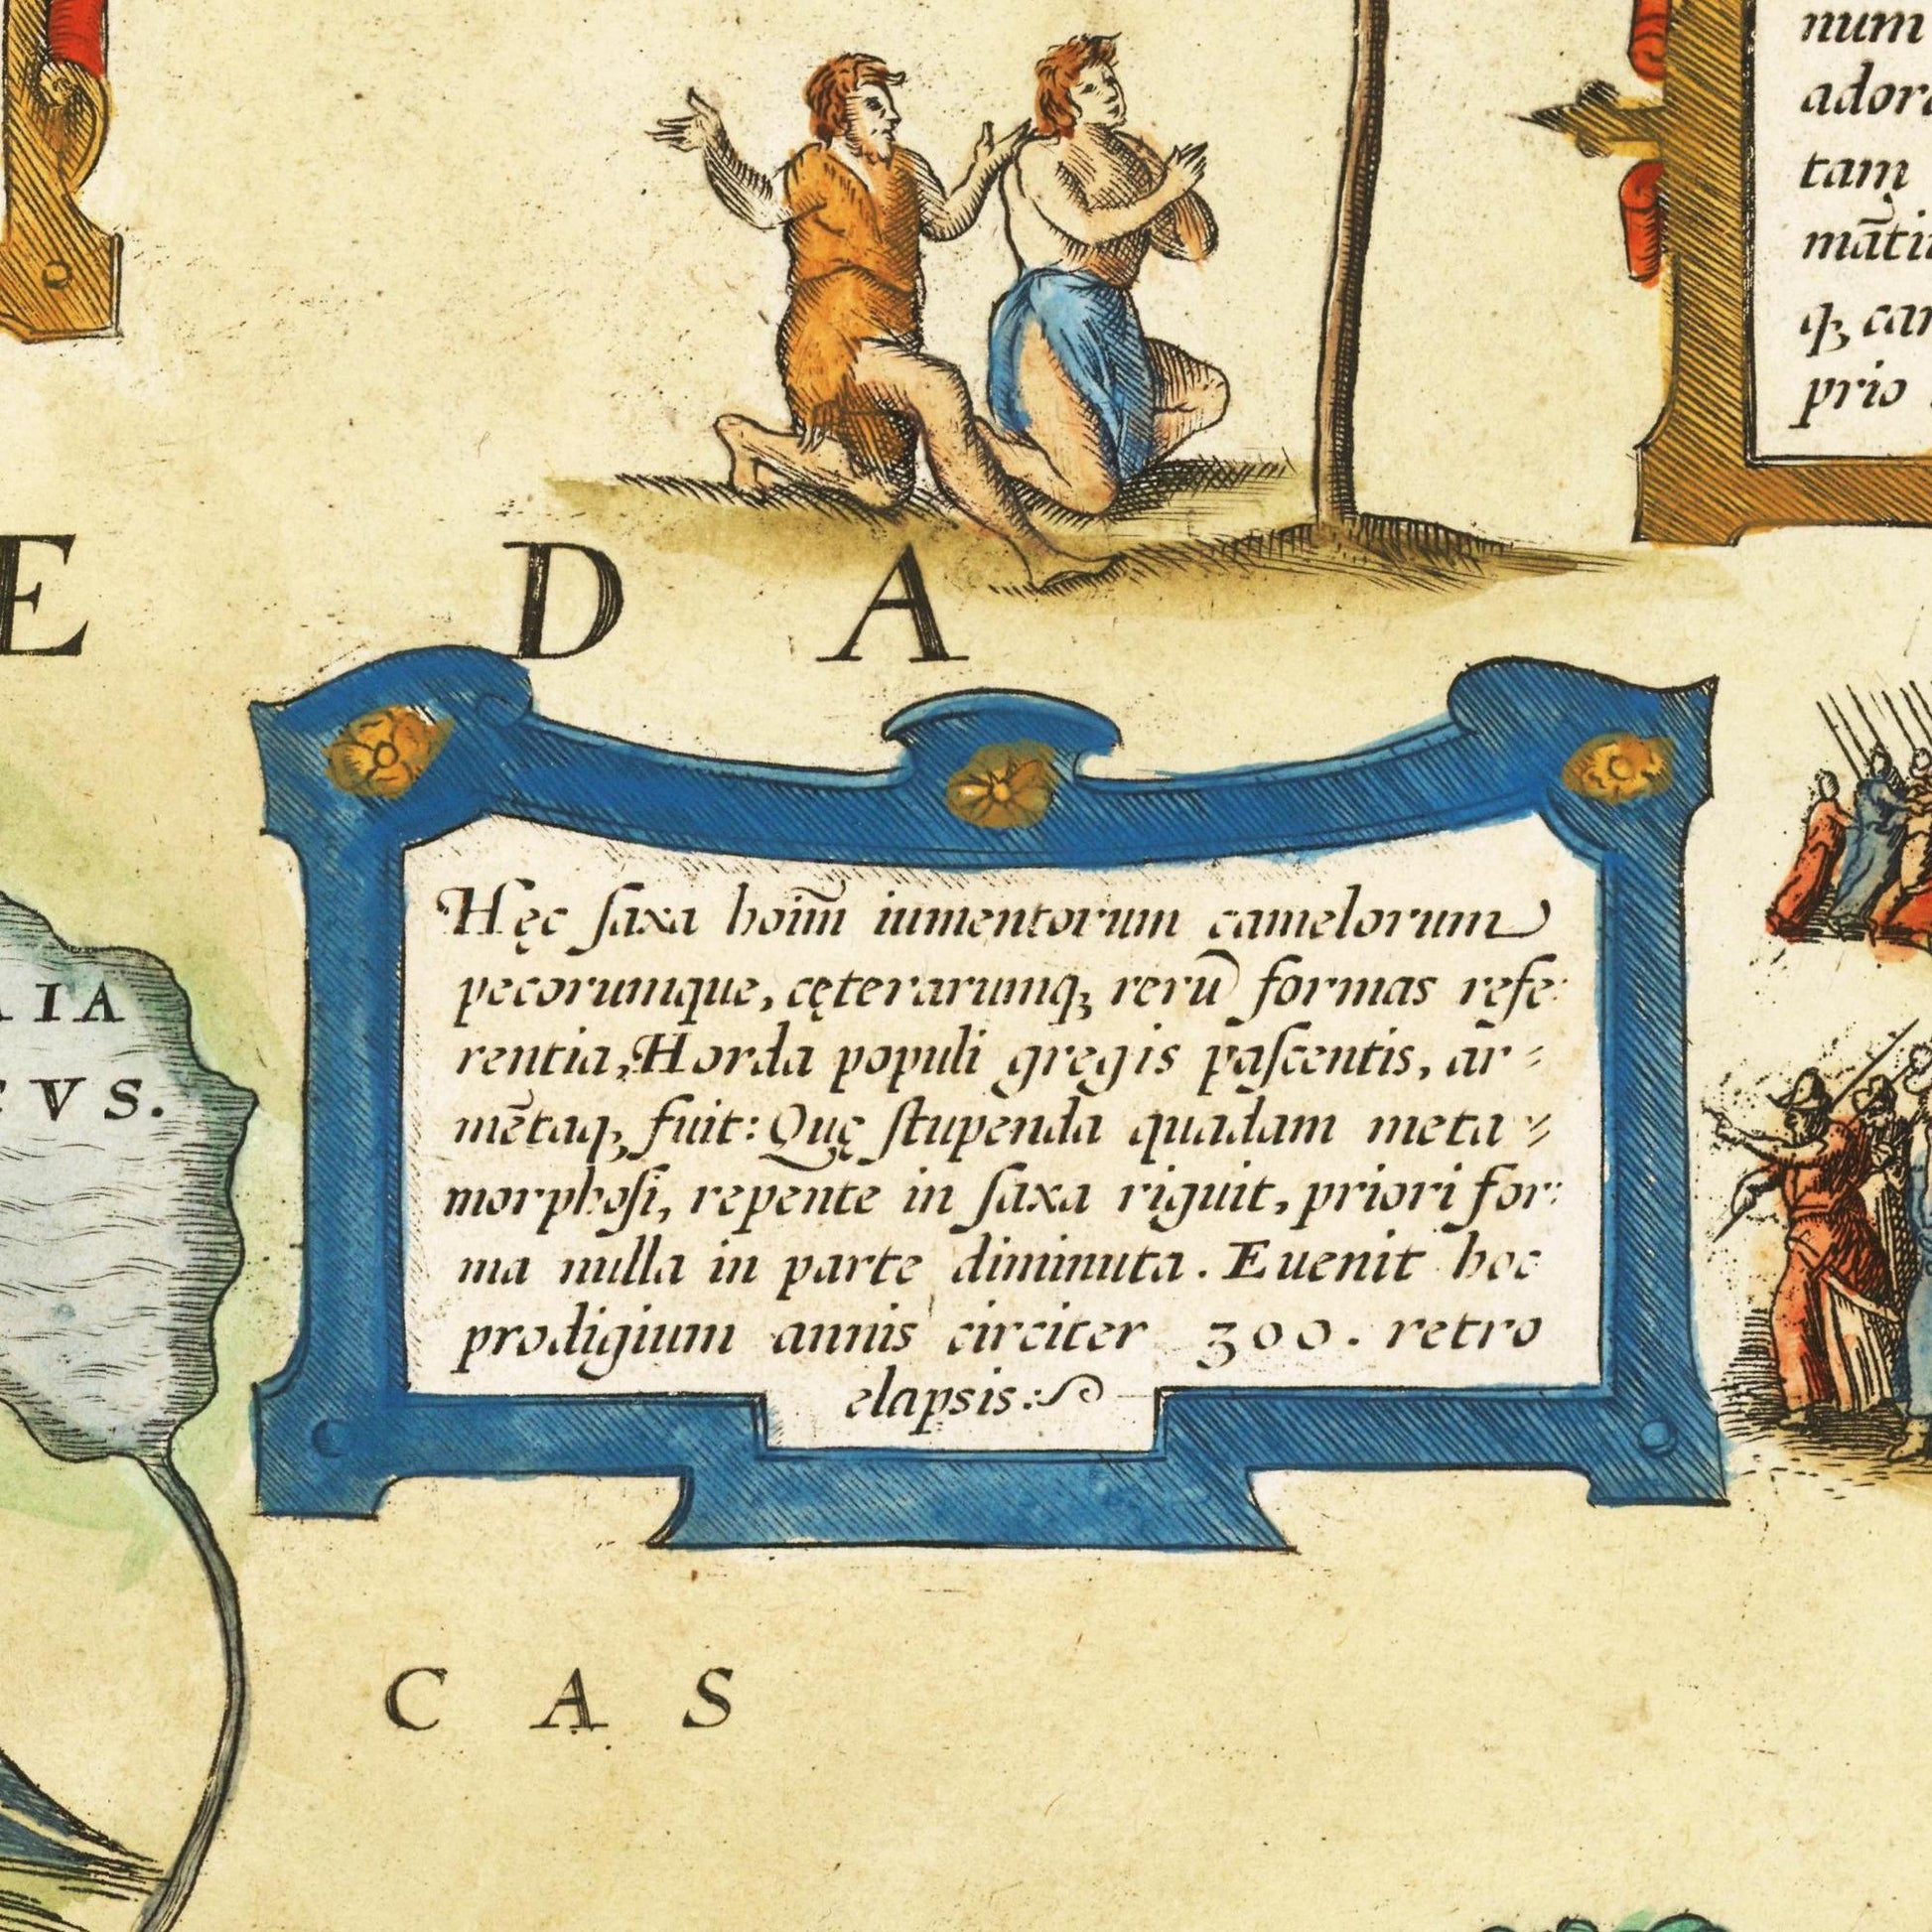 num
ador
tam
māti
qꝫ car
prio
E D A
Hęc ſaxa hoīm iumentorum camelorum
pecorumque, cęterarumqꝫ rerū formas refe:
rentia, Horda populi gregis paſcentis, ar-
mētaqꝫ fuit: Quę ſtupenda quadam meta-
morphoſi, repente in ſaxa riguit, priori for:
ma nulla in parte diminuta. Euenit hoc
prodigium annis circiter 300. retro
elapsis:
AIA
CVS.
C A S